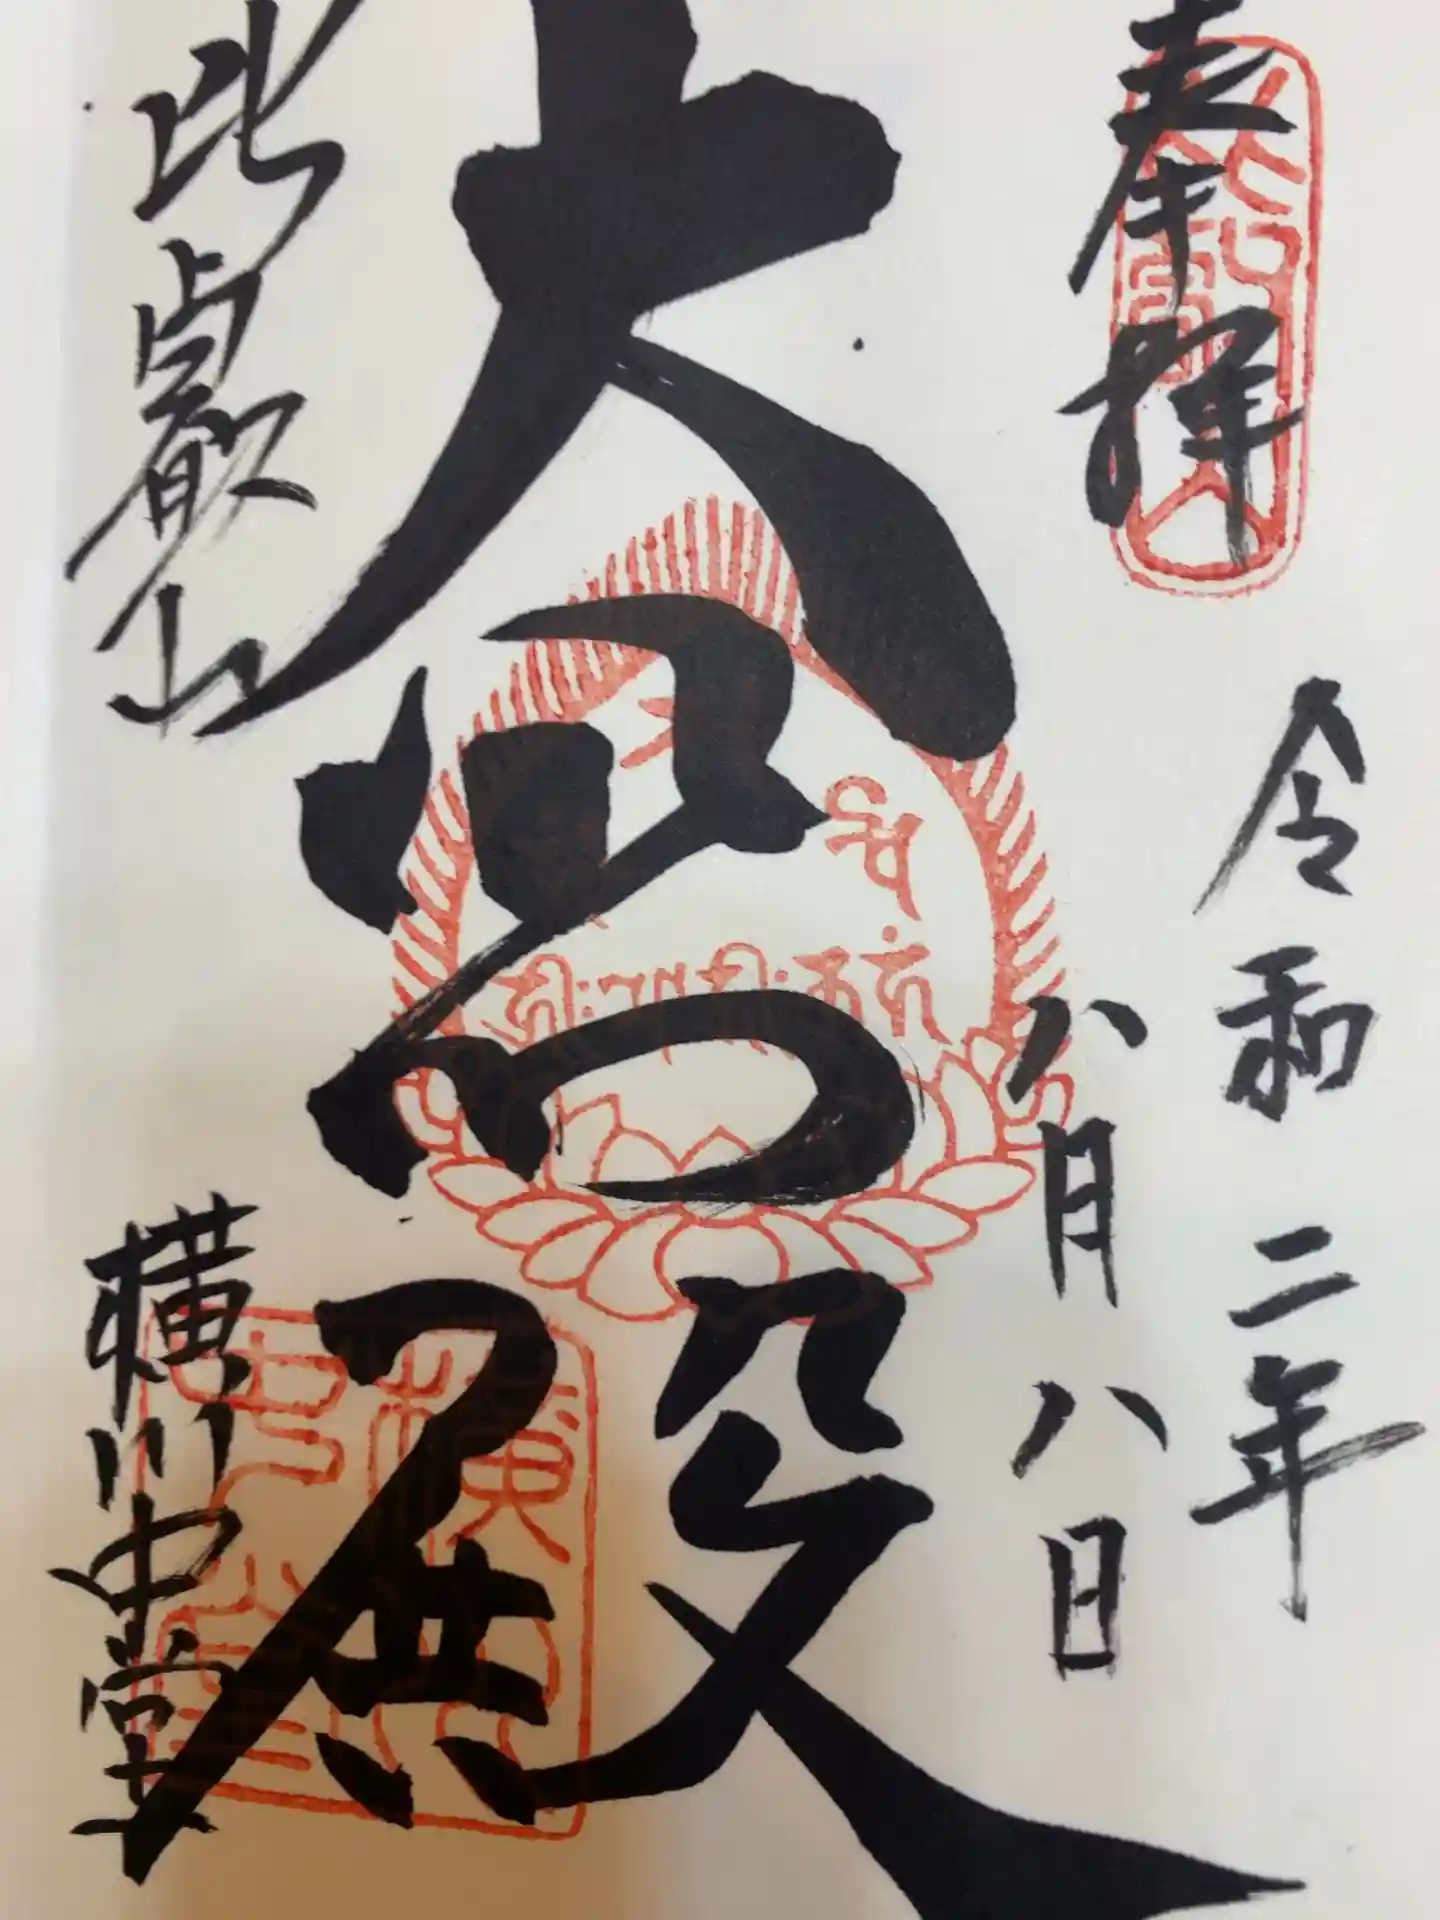 奉拝
令和二年
八月八日
大悲殿
比叡山
横川中堂
横川中堂